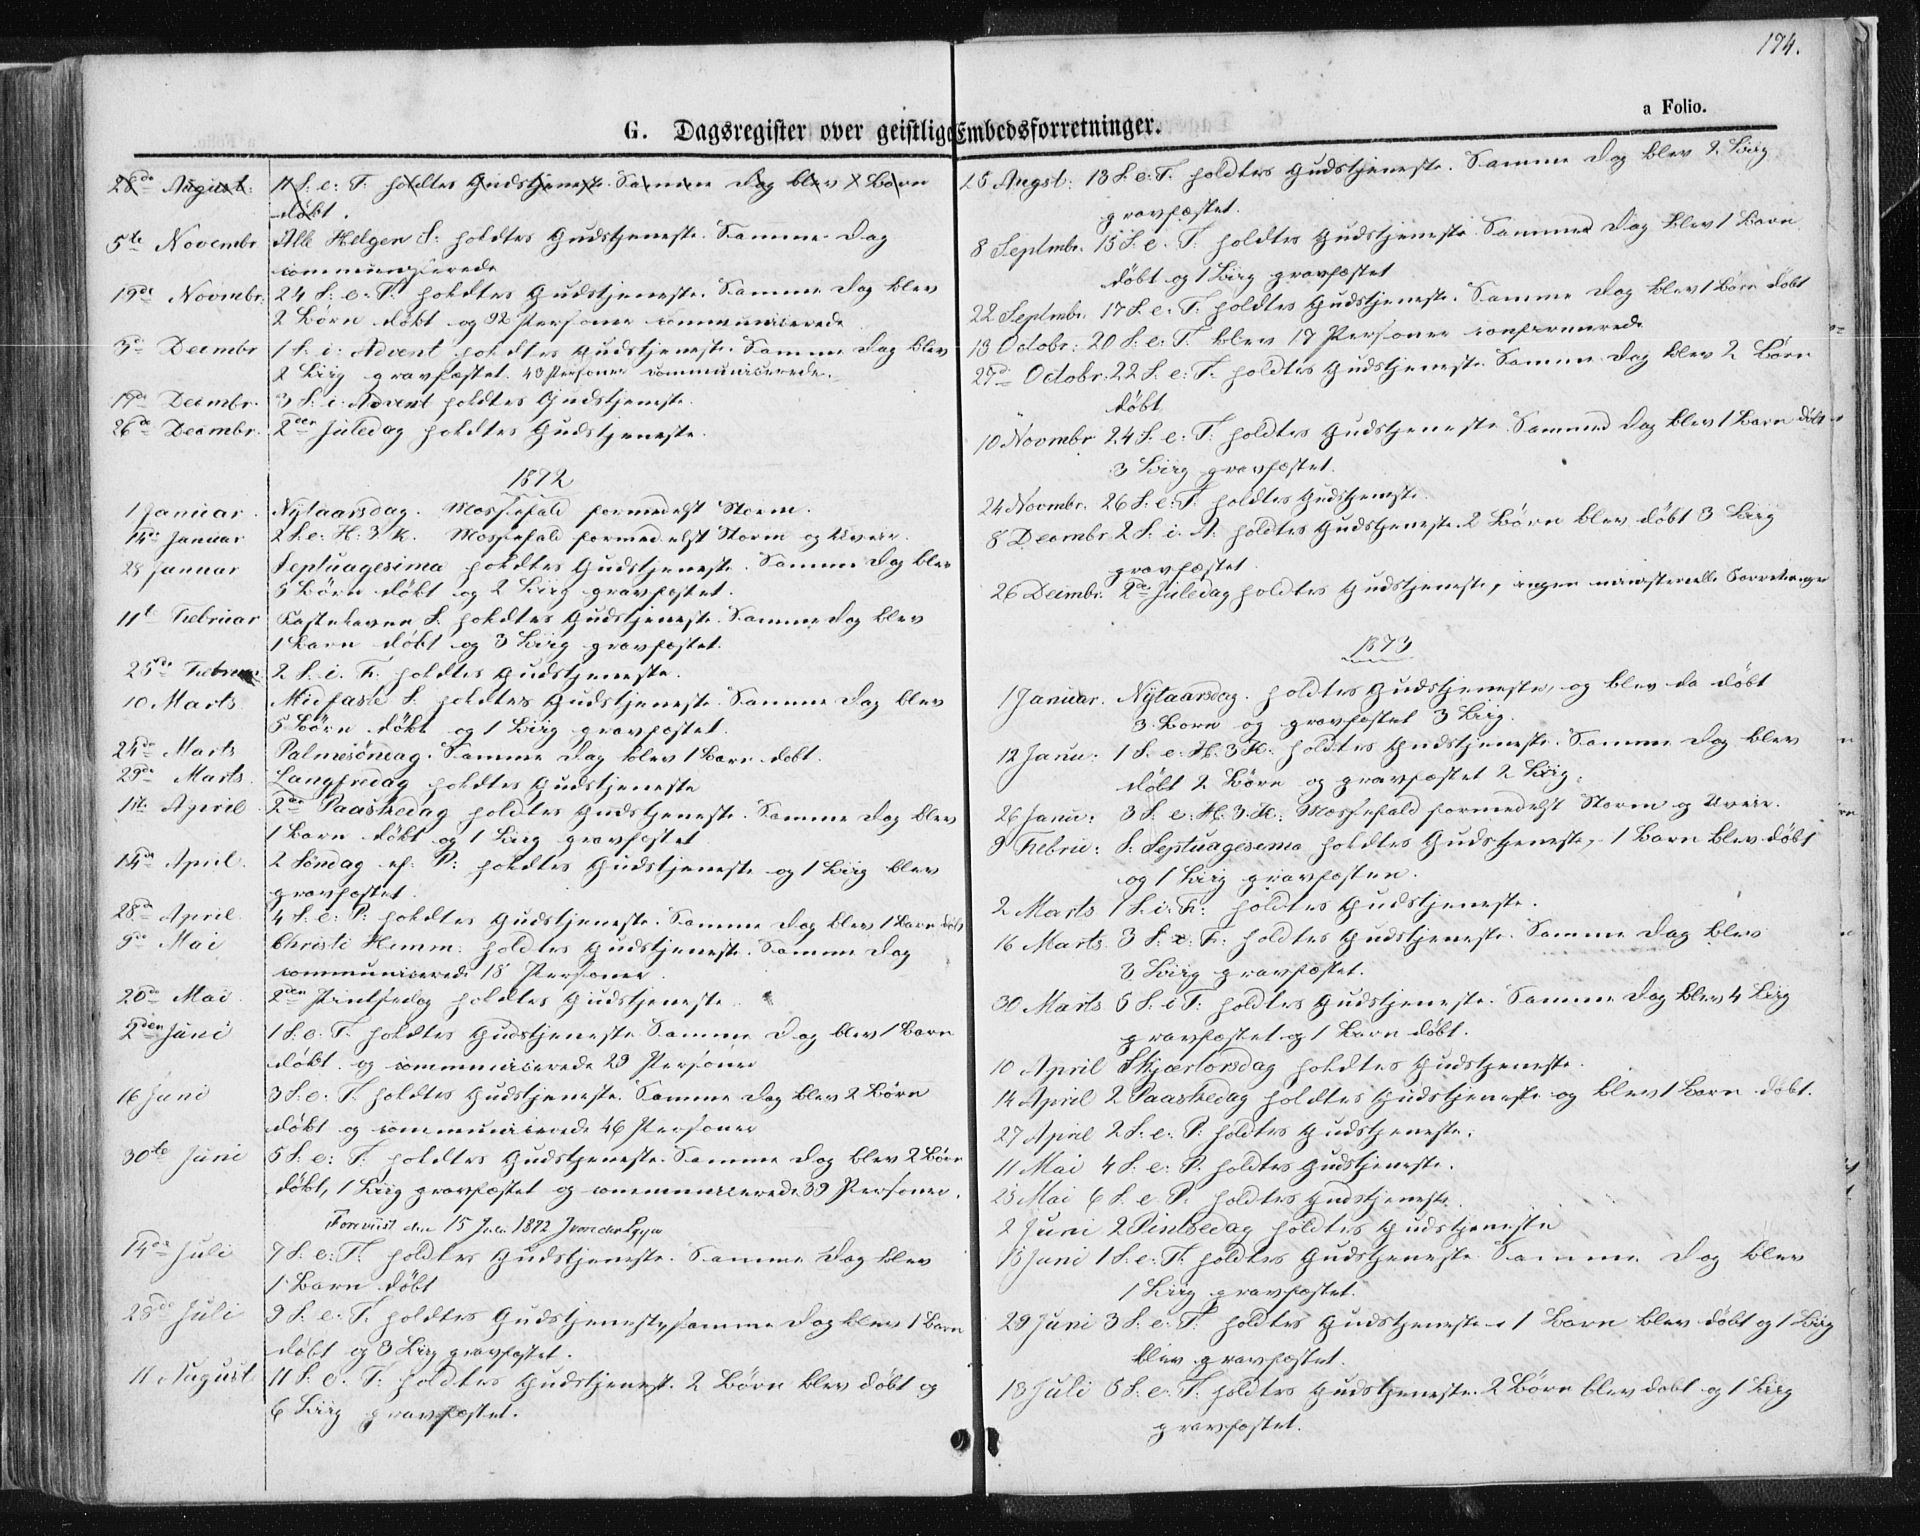 194.
a Folio.
G. Dagsregister over geistlige Embedsforretninger.
28de August: 11 S. e: T: holdtes Gudstjeneste. Samme Dag blev Børn
døbt.
5te Novembr Alle Helgen S: holdtes Gudstjeneste. Samme Dag
communicerede
19de Novmbr: 24 S. e. T. holdtes Gudstjeneste. Samme Dag blev
2 Børn døbt og 92 Personer communicerede
3de Decmbr 1 S. i: Advent holdtes Gudstjeneste. Samme Dag blev
2 Liig gravfæstet. 43 Personer communicerede.
17de Decmbr. 3 S. i. Advent holdtes Gudstjeneste.
26de Decmbr. 2den Juledag holdtes Gudstjeneste.
1872
1 Januar. Nytaarsdag. Messefald formedelst Storm.
14de Januar 2 S. e. H. 3 K. Messefald formedelst Storm og Uveir.
28 Januar Septuagesima holdtes Gudstjeneste. Samme Dag blev
5 Børn døbt og 2 Liig gravfæstet.
11te Februar Fastelavns S. holdtes Gudstjeneste. Samme Dag blev
1 Barn døbt og 3 Liig gravfæstet.
25de Februar 2 S. i. F. holdtes Gudstjeneste.
10 Marts Midfaste S. holdtes Gudstjeneste. Samme Dag blev
5 Børn døbt og 1 Liig gravfæstet.
24de Marts Palmesøndag. Samme Dag blev 1 Barn døbt.
29de Marts. Langfredag holdtes Gudstjeneste
1ste April 2den Paaskedag holdtes Gudstjeneste. Samme Dag blev
1 Barn døbt og 1 Liig gravfæstet
14de April. 2 Søndag ef. P: holdtes Gudstjeneste og 1 Liig blev
gravfæstet.
28de April. 4 S. e: P: holdtes Gudstjeneste. Samme Dag blev 1 Barn døbt
9de Mai Christi Himm: holdtes Gudstjeneste. Samme Dag
communicerede 18 Personer.
20de Mai. 2den Pintsedag holdtes Gudstjeneste.
2den Juni 1 S. e. T. holdtes Gudstjeneste Samme Dag blev 1 Barn
døbt og communicerede 29 Personer
16 Juni 3 S. e. T. holdtes Gudstjeneste. Samme Dag blev 2 Børn
døbt og communicerede 46 Personer
30te Juni 5 S: e: T: holdtes Gudstjeneste. Samme Dag blev 2 Børn
døbt, 1 Liig gravfæstet og communicerede 39 Personer.
Foreviist den 15 Juli 1872
14de Juli 7 S. e: T. holdtes Gudstjeneste. Samme Dag blev
1 Barn døbt
28de Juli 9 S. e. T. holdtes Gudstjeneste, samme Dag blev 1 Barn
døbt og 3 Liig gravfæstet.
11 August. 11 S. e. T: holdtes Gudstjenest. 2 Børn blev døbt og
6 Liig gravfæstet.
25 Augst: 13 S. e. T. holdtes Gudstjeneste. Samme Dag blev 2 Liig
gravfæstet.
8 Septmbr. 15 S. e. T: holdtes Gudstjeneste Samme Dag blev 1 Barn
døbt og 1 Liig gravfæstet
22 Septmbr. 17 S. e. T. holdtes Gudstjeneste. Samme Dag blev 1 Barn døbt
13 Octobr: 20 S. e: T. blev 17 Personer confirmerede
27de Octobr. 22 S. e: T. holdtes Gudstjeneste. Samme Dag blev 2 Børn
døbt
10 Novmbr 24 S. e: T: holdtes Gudstjeneste. Samme Dag blev 1 Barn døbt
3 Liig gravfæstet.
24 Novmbr. 26 S: e: T. holdtes Gudstjeneste.
8 Decmbr. 2 S: i. A: holdtes Gudstjeneste. 2 Børn blev døbt 3 Liig
gravfæstet.
26 Decmbr. 2den Juledag holdtes Gudstjeneste, ingen ministerielle Forretninger
1873
1 Januar. Nytaarsdag. holdtes Gudstjeneste, og blev da døbt
3 Børn og gravfæstet 3 Liig.
12 Janu: 1 S. e. H. 3 K. holdtes Gudstjeneste. Samme Dag blev
døbt 2 Børn og gravfæstet 2 Liig.
26 Janu: 3 S. e. H. 3 K. Messefald formedelst Storm og Uveir.
9 Febru: S. Septuagesima holdtes Gudstjeneste, 1 Barn blev døbt
og 1 Liig gravfæsten.
2 Marts 1 S. i. F: holdtes Gudstjeneste.
16 Marts 3 S. i. F: holdtes Gudstjeneste. Samme Dag blev
3 Liig gravfæstet.
30 Marts 5 S. i F: holdtes Gudstjeneste. Samme Dag blev 4 Liig
gravfæstet og 1 Barn døbt.
10 April Skjærtorsdag holdtes Gudstjeneste.
14 April 2 Paaskedag holdtes Gudstjeneste og blev 1 Barn døbt.
27 April 2 S. e: P: holdtes Gudstjeneste.
11 Mai 4 S. e: P. holdtes Gudstjeneste.
25 Mai 6 S. e P. holdtes Gudstjeneste
2 Juni 2 Pintsedag holdtes Gudstjeneste
15 Juni 1 S. e: T. holdtes Gudstjeneste Samme Dag blev
1 Liig gravfæstet.
29 Juni 3 S. e: T. holdtes Gudstjeneste. 1 Barn blev døbt og 1 Liig
blev gravfæstet.
13 Juli 5 S. e. T. holdtes Gudstjeneste. 2 Børn blev døbt og 1 Liig
gravfæstet.